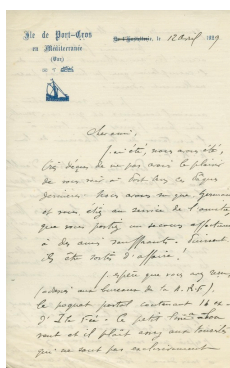 Ile de Port-Cros
en Méditerranée
(Var)
le 12 Avril 1929
Cher ami,
J'ai été, nous avons été,
très déçus de ne pas avoir le plaisir
de vous voir à Port-Cros ces Pâques
dernières. Nous avons su que Germaine
et vous étiez au service de l'amitié,
que vous portiez un secours affectueux
à des amis souffrants. Puissent-
ils être sortis d'affaire !
J'espère que vous avez reçu,
(adressé aux bureaux de la N.R.F.),
le paquet postal contenant 16 ex.
d'Ile Fée. Ce petit
et il plaît assez aux touristes
qui ne sont pas exclusivement